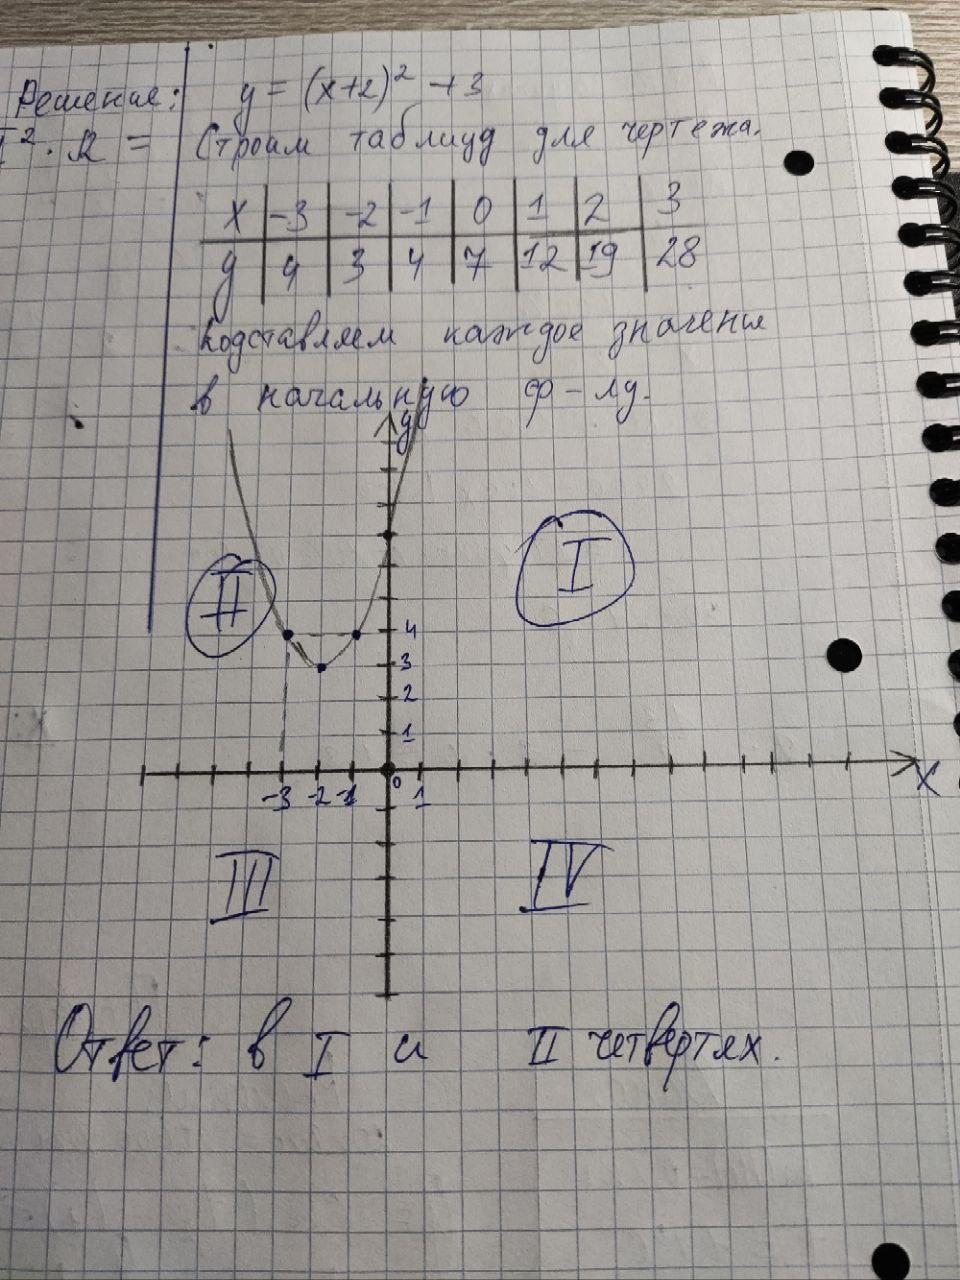 Решение: y = (x+2)² + 3
I². R = Строим таблицу для чертежа.
x -3 -2 -1 0 1 2 3
y 4 3 4 7 12 19 28
Подставляем каждое значение
в начальную ф-лу.
y
II I
4
3
2
1
-3 -2 -1 0 1 x
III IV
Ответ: в I и II четвертях.